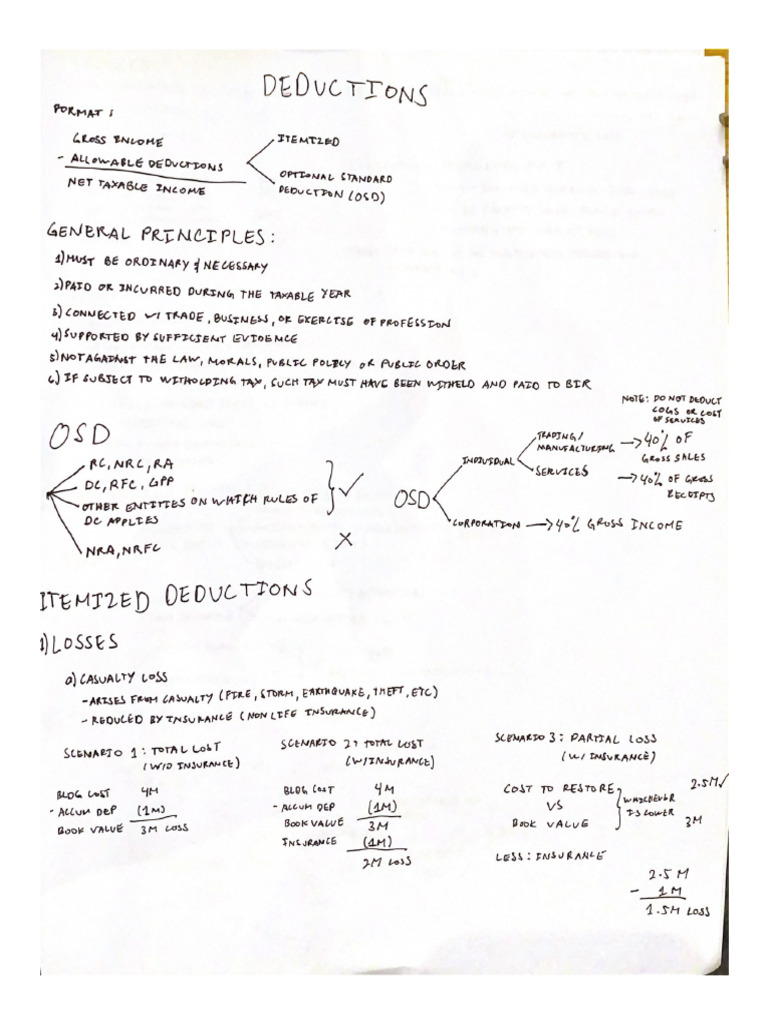 DEDUCTIONS
FORMAT:
GROSS INCOME
- ALLOWABLE DEDUCTIONS
NET TAXABLE INCOME
ITEMIZED
OPTIONAL STANDARD
DEDUCTION (OSD)
GENERAL PRINCIPLES:
1) MUST BE ORDINARY & NECESSARY
2) PAID OR INCURRED DURING THE TAXABLE YEAR
3) CONNECTED W/ TRADE, BUSINESS, OR EXERCISE OF PROFESSION
4) SUPPORTED BY SUFFICIENT EVIDENCE
5) NOT AGAINST THE LAW, MORALS, PUBLIC POLICY OR PUBLIC ORDER
6) IF SUBJECT TO WITHOLDING TAX, SUCH TAX MUST HAVE BEEN WITHELD AND PAID TO BIR
OSD
RC, NRC, RA
DC, RFC, GPP
OTHER ENTITIES ON WHICH RULES OF
DC APPLIES
✓
NRA, NRFC
X
NOTE: DO NOT DEDUCT
COGS OR COST
OF SERVICES
OSD
INDIVIDUAL
TRADING/
MANUFACTURING → 40% OF
GROSS SALES
SERVICES → 40% OF GROSS
RECEIPTS
CORPORATION → 40% GROSS INCOME
ITEMIZED DEDUCTIONS
1) LOSSES
a) CASUALTY LOSS
- ARISES FROM CASUALTY (FIRE, STORM, EARTHQUAKE, THEFT, ETC)
- REDUCED BY INSURANCE (NON LIFE INSURANCE)
SCENARIO 1: TOTAL LOST
(W/O INSURANCE)
BLDG COST 4M
- ACCUM DEP (1M)
BOOK VALUE 3M LOSS
SCENARIO 2: TOTAL LOST
(W/ INSURANCE)
BLDG COST 4M
- ACCUM DEP (1M)
BOOK VALUE 3M
INSURANCE (1M)
2M LOSS
SCENARIO 3: PARTIAL LOSS
(W/ INSURANCE)
COST TO RESTORE 2.5M ✓
VS WHICHEVER
IS LOWER
BOOK VALUE 3M
LESS: INSURANCE
2.5 M
- 1M
1.5M LOSS